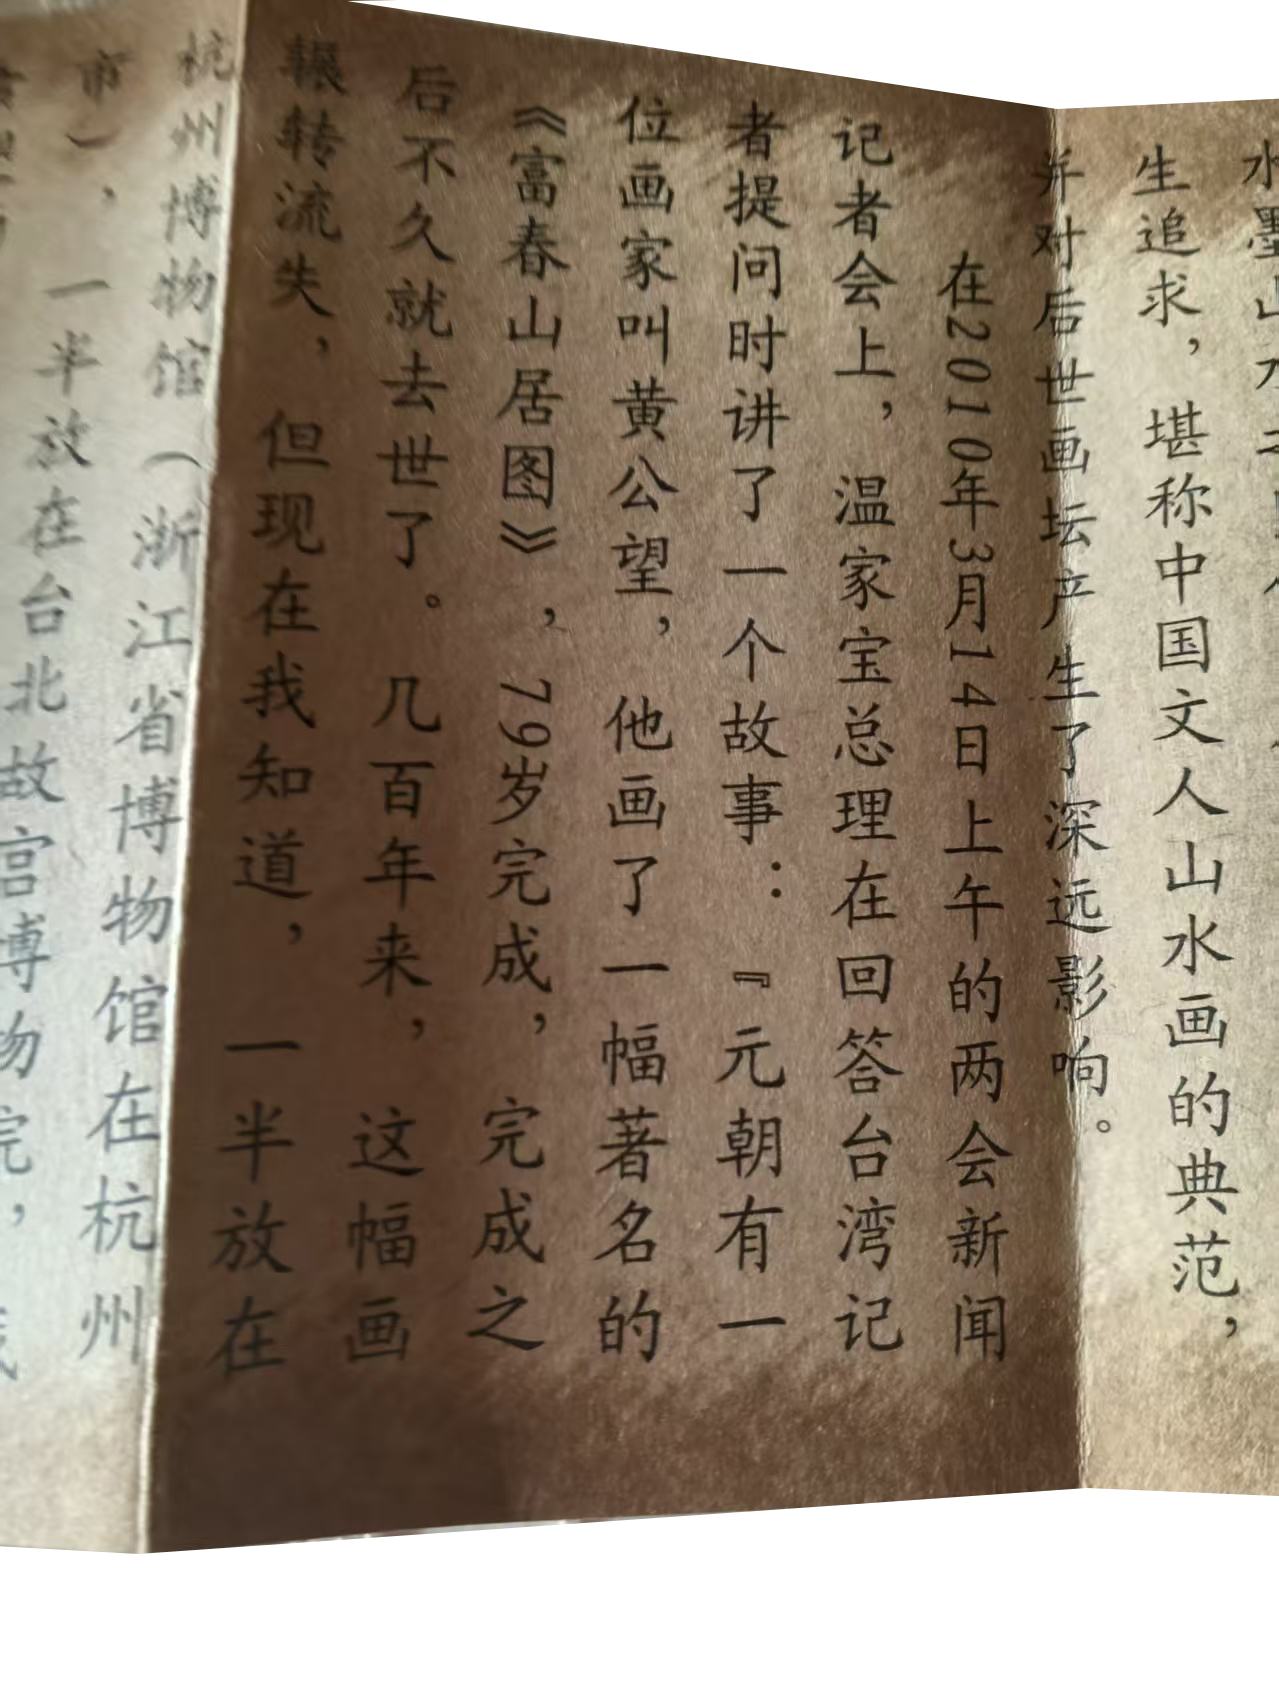 生追求，堪称中国文人山水画的典范，
并对后世画坛产生了深远影响。
在2010年3月14日上午的两会新闻
记者会上，温家宝总理在回答台湾记
者提问时讲了一个故事：『元朝有一
位画家叫黄公望，他画了一幅著名的
《富春山居图》，79岁完成，完成之
后不久就去世了。几百年来，这幅画
辗转流失，但现在我知道，一半放在
杭州博物馆（浙江省博物馆在杭州
市），一半放在台北故宫博物院，